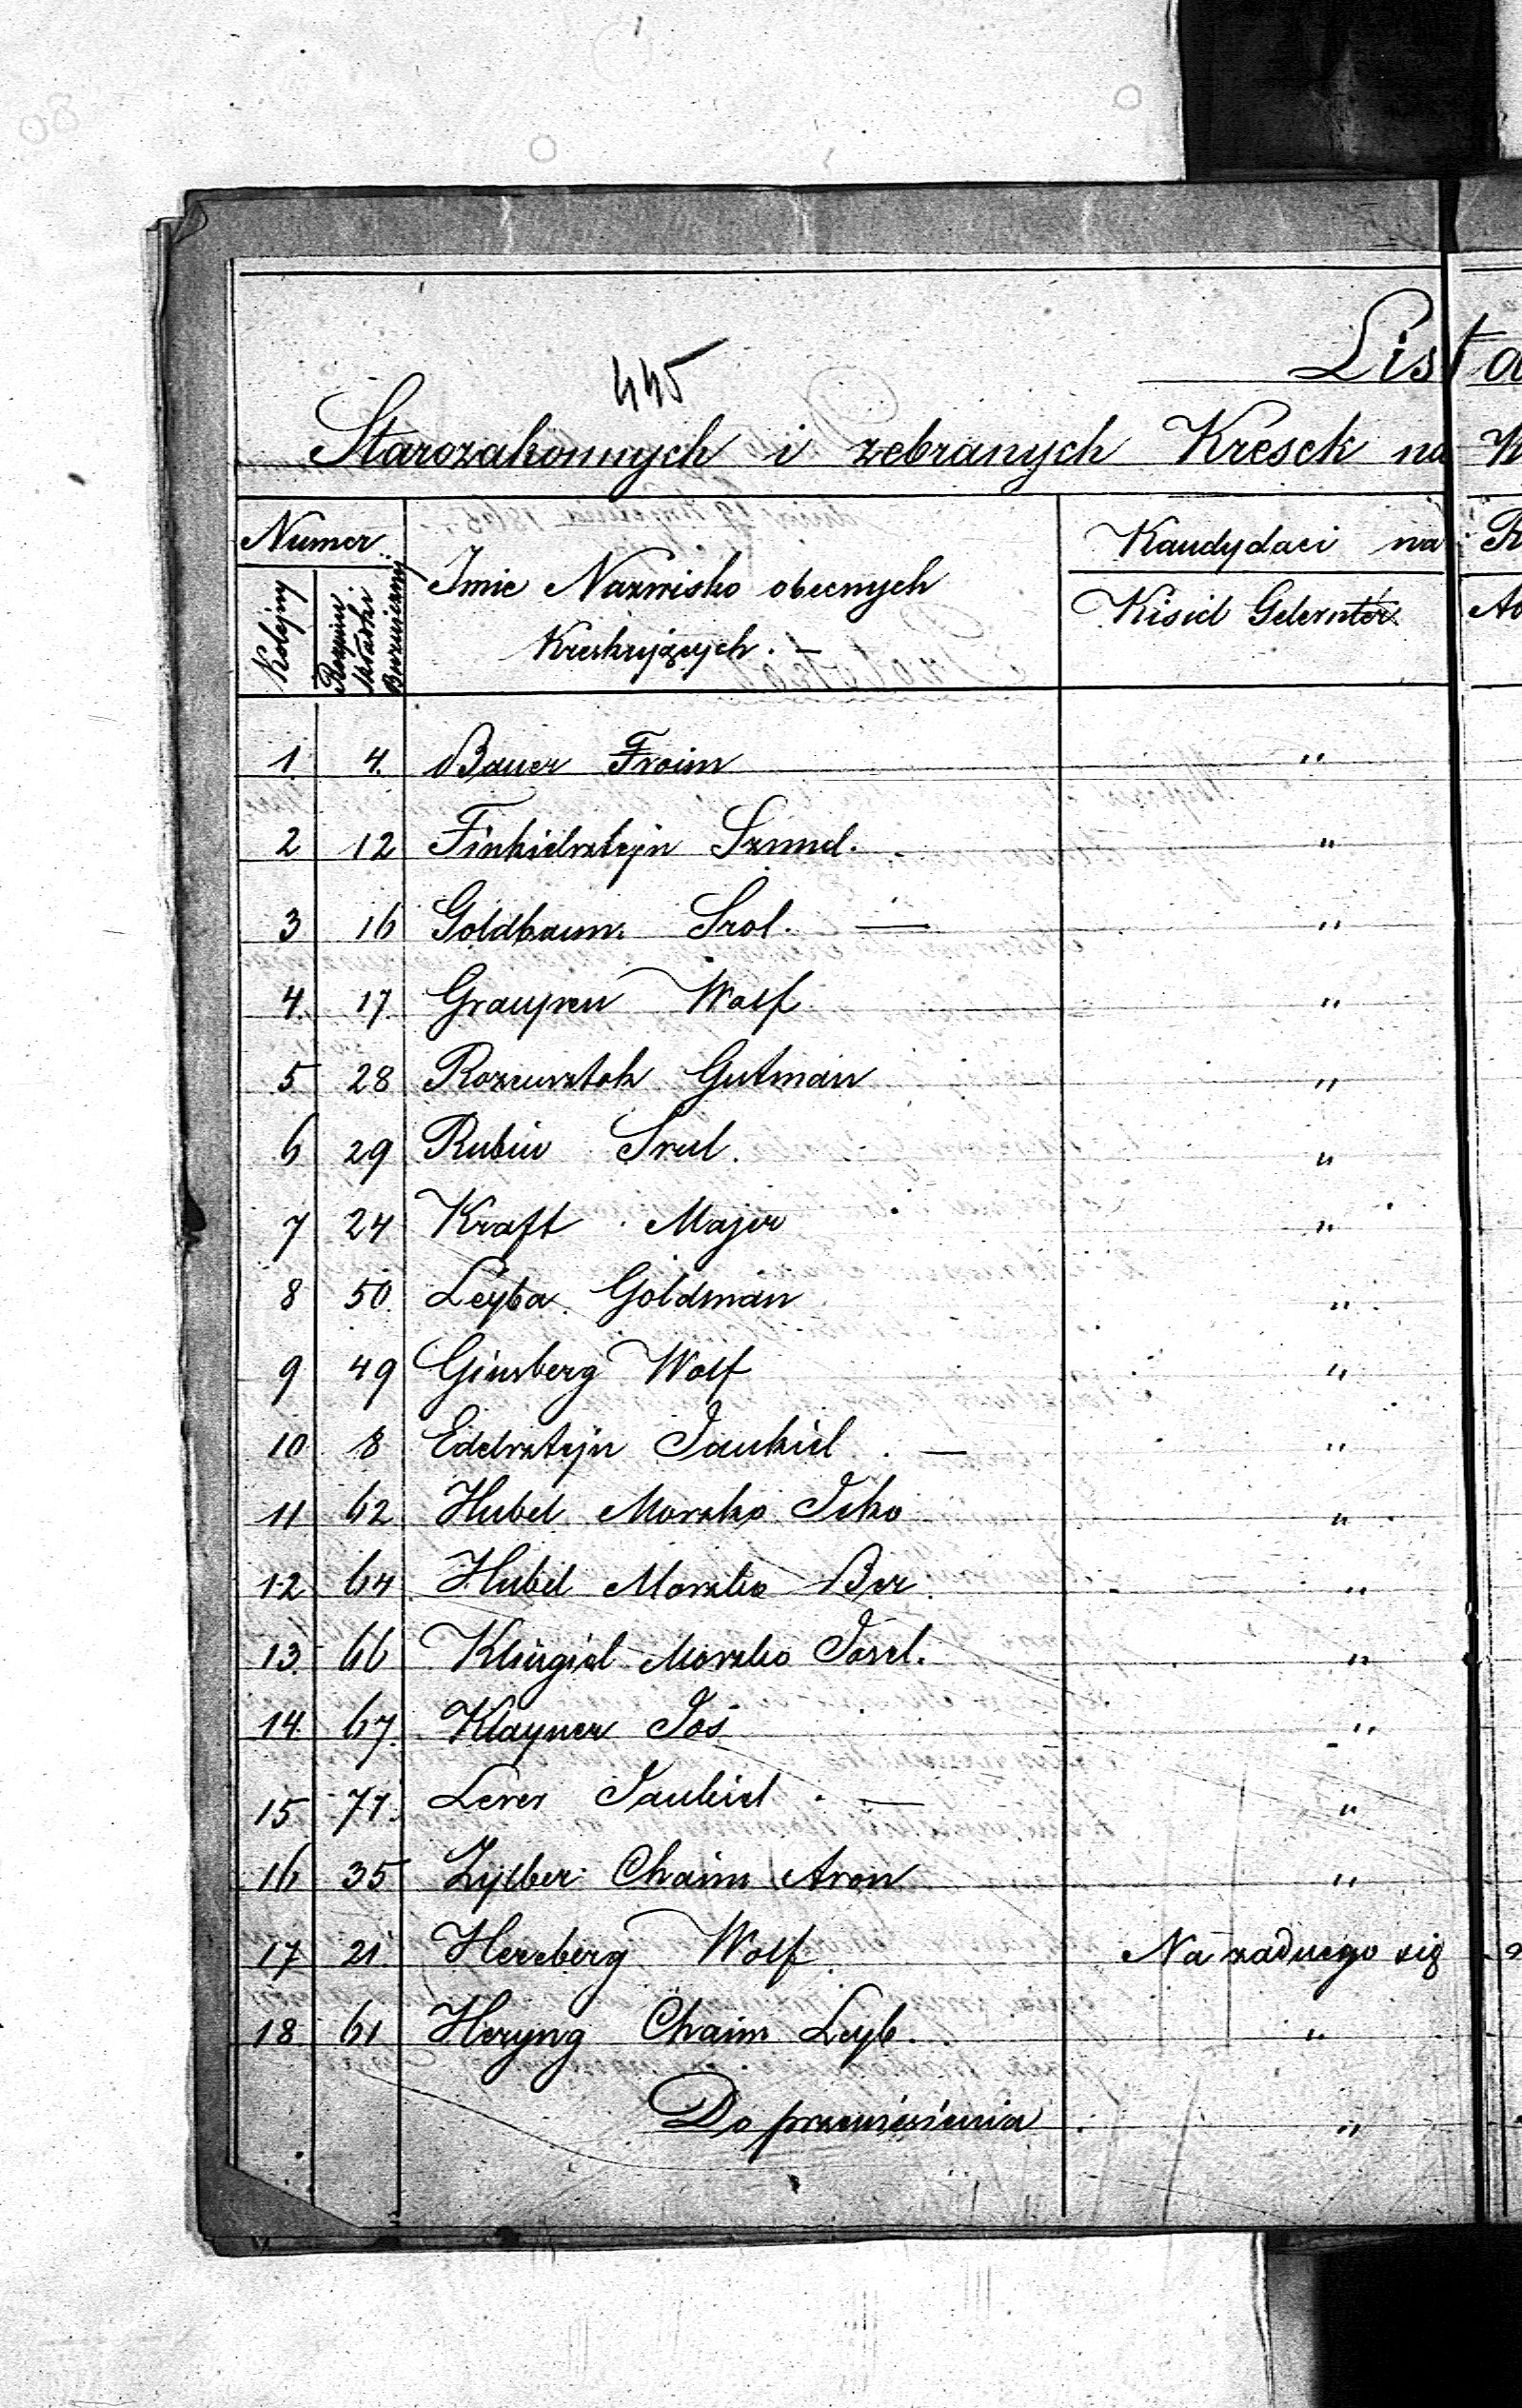 Lista
445
Starozakonnych i zebranych Kresek na
Numer
Kolejny
Rozpisu Składki Bożniczej
Imie Nazwisko obecnych
Kreskujących. —
Kandydaci na
Kisiel Gelernter
1. 4. Bauer Froim "
2 12 Finkielsztejn Szmul. "
3 16 Goldbaum Srol. — "
4. 17. Graupen Wolf "
5 28 Rozensztok Gutman "
6 29 Rubin Srul. "
7 24 Kraft Majer "
8 50. Leyba Goldman "
9 49 Ginsberg Wolf "
10 8 Edelsztejn Jankiel . — "
11 62. Hubel Moszko Icko "
12 64. Hubel Moszko Ber. "
13. 66 Klingiel Moszko Josel. "
14. 67. Klayner Joś "
15 71. Lerer Jankiel . — "
16 35 Zylber Chaim Aron "
17 21. Herzberg Wolf. Na żadnego się
18. 61 Heryng Chaim Leyb. "
Do przeniesienia "